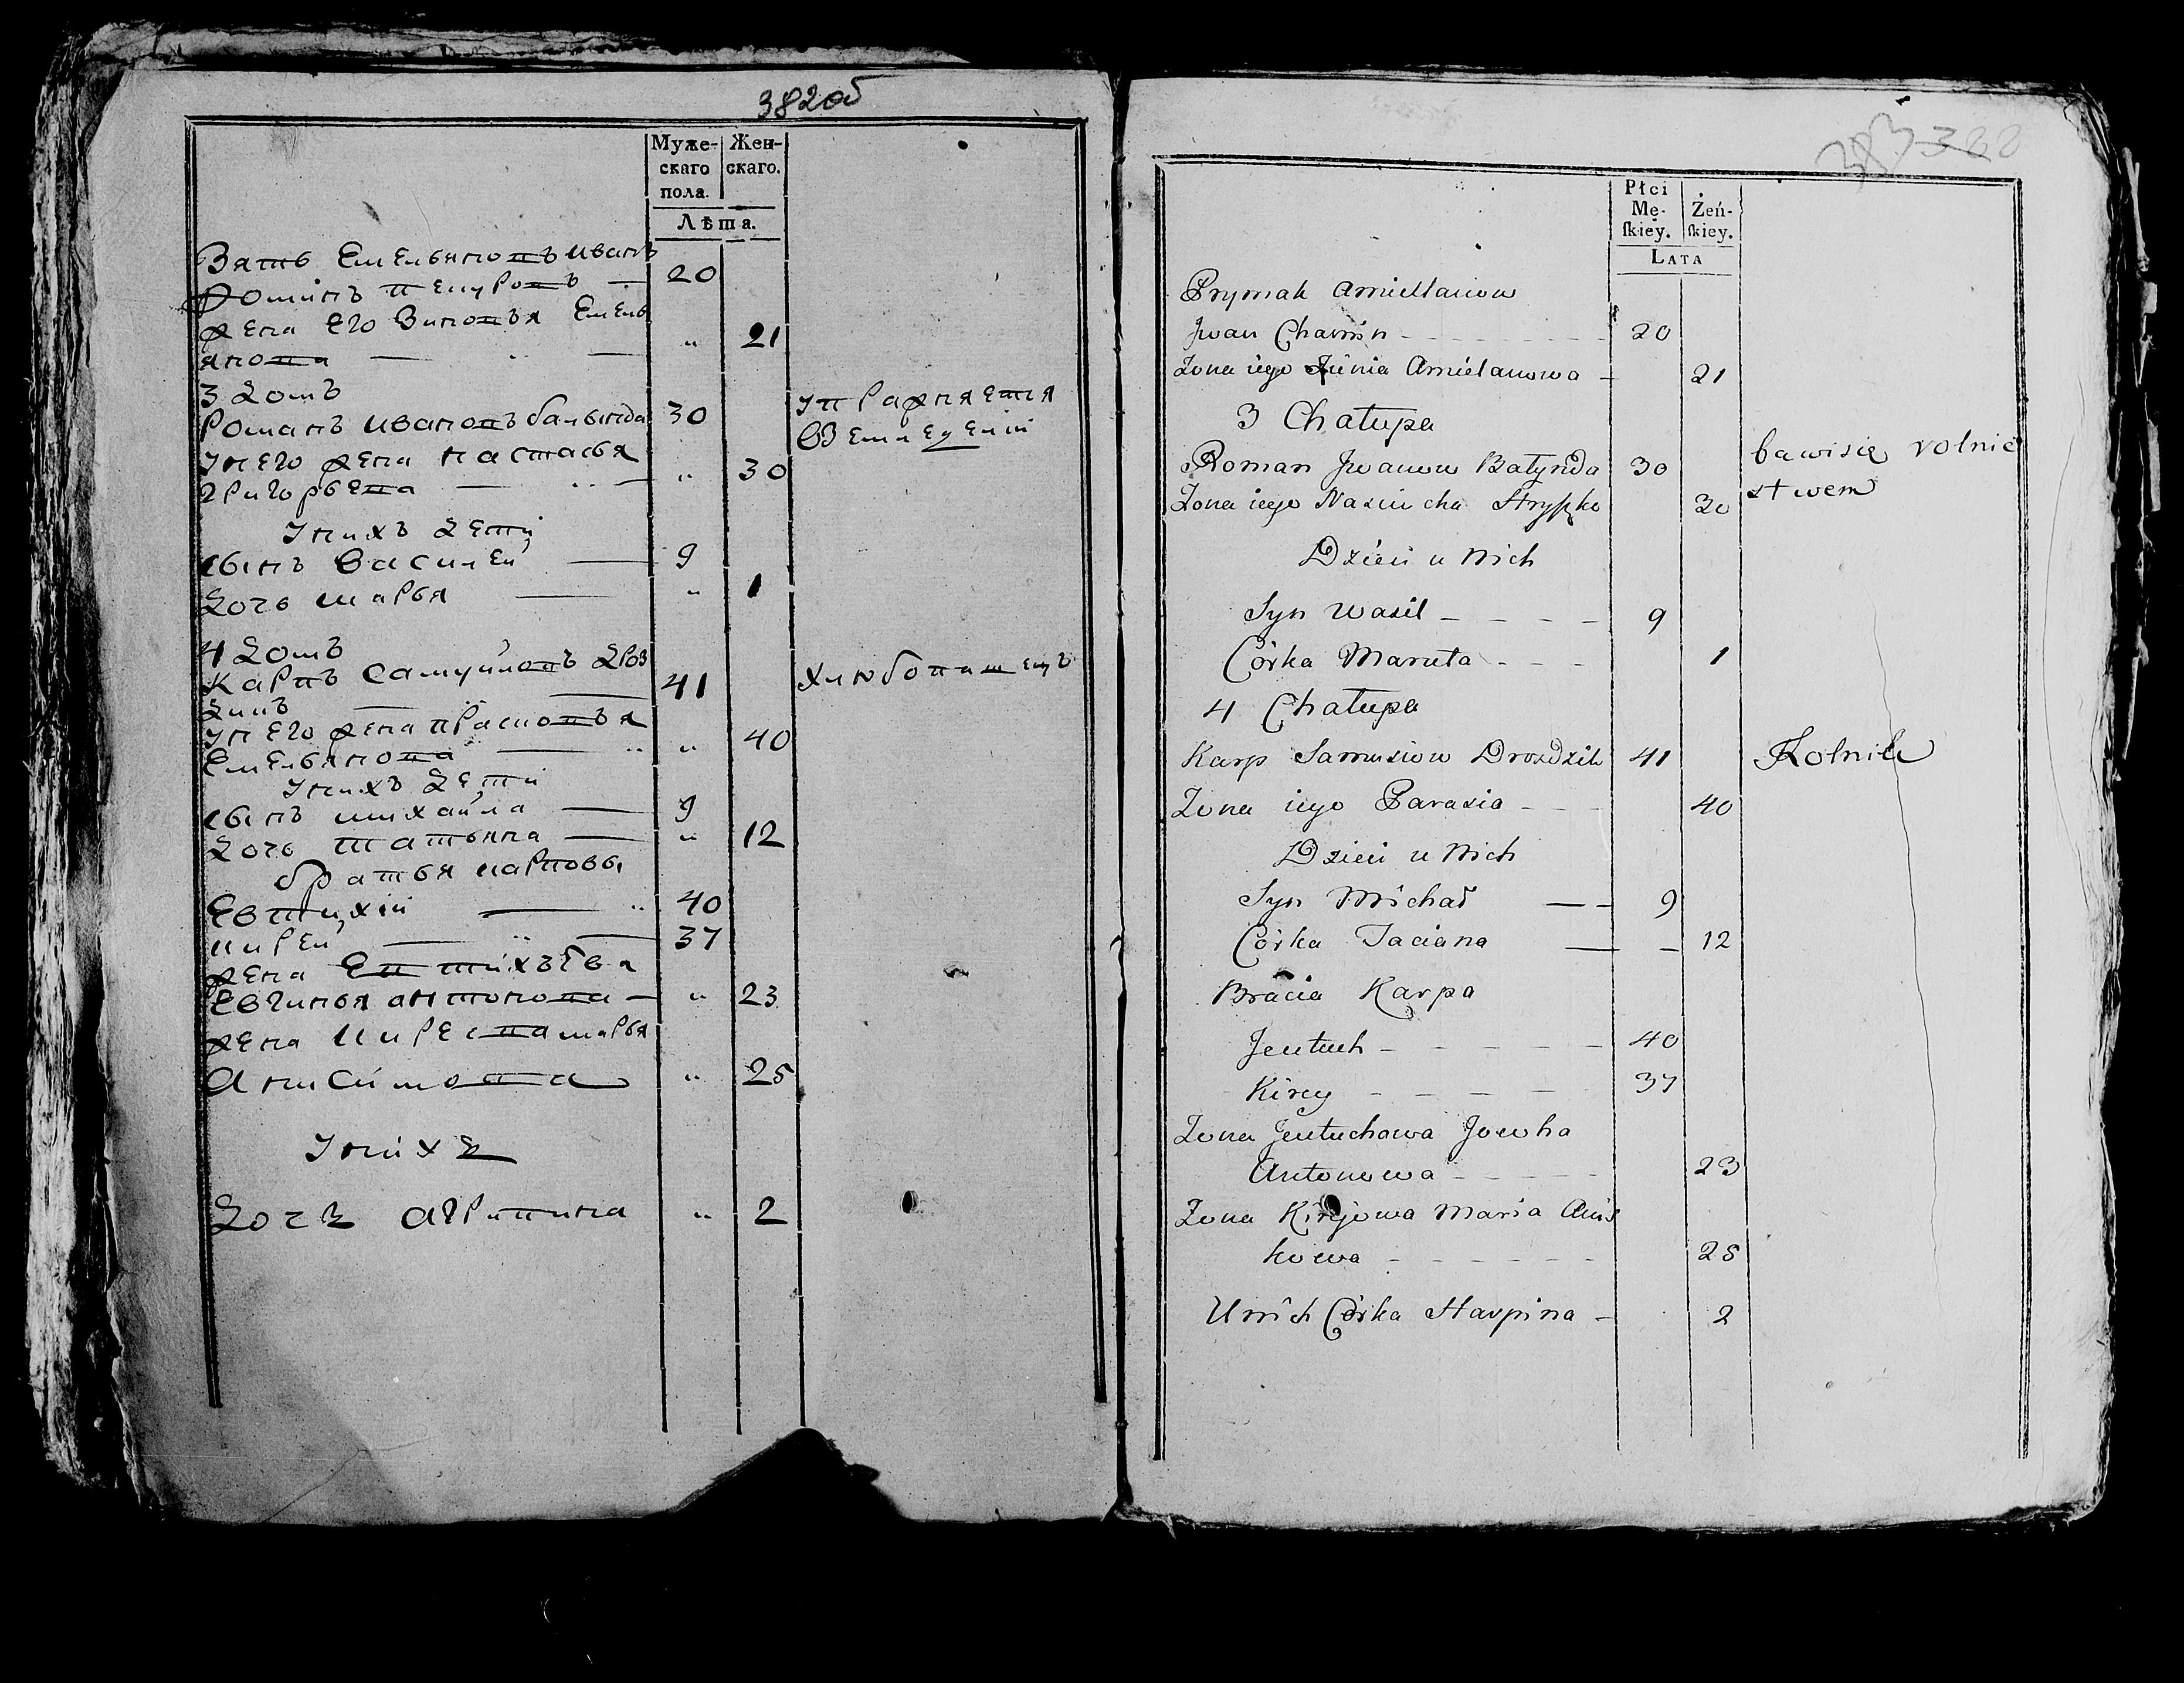 382об
Муже-
скаго
пола.
Жен-
скаго.
Лѣта.
Зять Емельяновъ Иванъ
Фоминъ 20
жена его Зиновья Емель
янова „ 21
3 Домъ
Романъ Ивановъ балында 30
унего жена настасья
григорьева „ 30
унихъ дети
сынъ василей 9
дочь марья „ 1
упражняется
вземледелiи
4 Домъ
Карпъ Самуйловъ Дроз
дикъ 41
унего жена прасковья
Емельянова „ 40
хлебопашецъ
унихъ дети
сынъ михайла 9
дочь татьяна „ 12
братья карповы
Евтихiй 40
кирей 37
жена Евтихъева
Евгинья антонова „ 23
жена кирее ва марья
Анисимова „ 25
унихъ
дочь агрипина „ 2
383 388
Płci
Mę-
ſkiey.
Żeń-
ſkiey.
LATA
Prymak Amiellanow
Jwan Chamin 20
Zona iego Zienia Amielanowa 21
3 Chatupa
Roman Jwanow Batynda 30
bawisię rolnic
stwem
Zona iego Nasciucha Hryszko 30
Dzieci u Nich
Syn Wasil 9
Córka Maruta 1
4 Chatupa
Karp Samusiow Drozdzik 41 Rolnik
Zona iego Parasia 40
Dzieci u Nich
Syn Michał 9
Córka Taciana 12
Bracia Karpa
Jeutuch 40
Kirey 37
Zona Jeutuchowa Jowha
Antonowa 23
Zona Kirejowa Maria Anis
kowa 25
Unich Córka Harpina 2